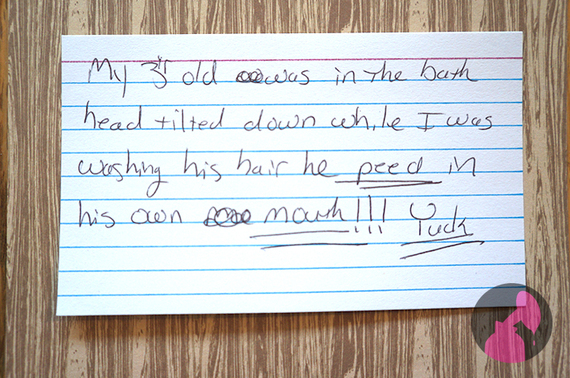 My 3yr old was in the bath
head tilted down while I was
washing his hair he peed in
his own mouth!!! Yuck